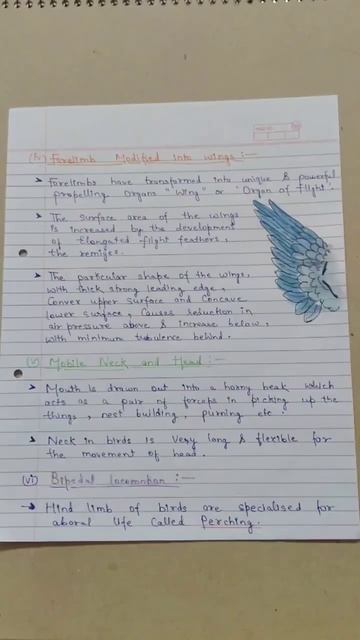 (iv) Forelimb Modified into wings :-
➤ Forelimbs have transformed into unique & powerful
propelling organs "Wing" or 'Organ of flight'.
➤ The surface area of the wings
is increased by the development
of Elongated flight feathers,
the remiges.
➤ The particular shape of the wings,
with thick strong leading edge,
Conver upper surface and Concave
lower surface, Causes reduction in
air pressure above & increase below,
with minimum turbulence behind.
(v) Mobile Neck and Head :-
➤ Mouth is drawn out into a horny beak which
acts as a pair of forceps in picking up the
things, nest building, purning etc.
➤ Neck in birds is very long & flexible for
the movement of head.
(vi) Bipedal locomotion :-
→ Hind limb of birds are specialised for
aboral life called Perching.